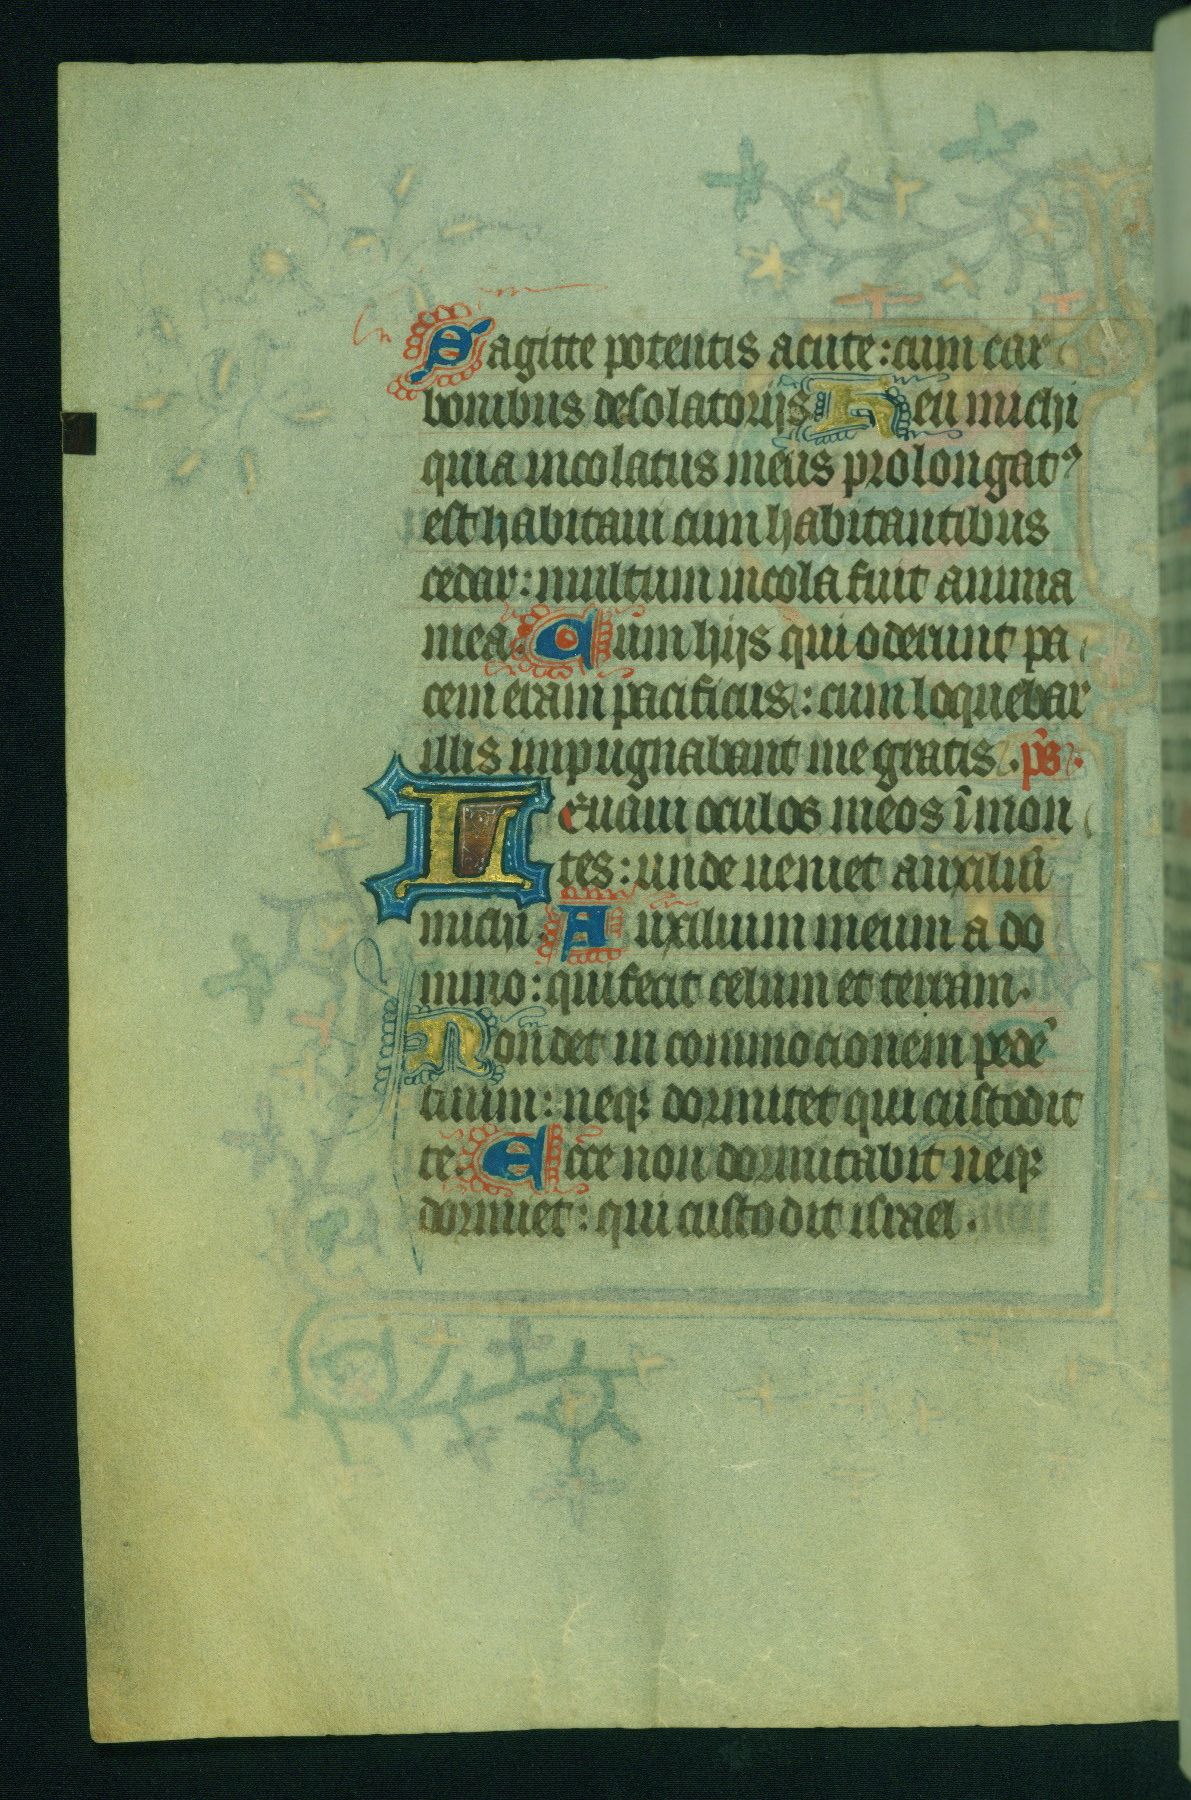 Sagitte potentis acute: cum car
bonibus desolatorijs. Heu michi
quia incolatus meus prolongatꝰ
est habitaui cum habitantibus
cedar: multum incola fuit anima
mea. Cum hijs qui oderunt pa
cem eram pacificus: cum loquebar
illis inpugnabant me gratis. p̄s.
Leuaui oculos meos ī mon
tes: unde ueniet auxiliū
michi. Auxilium meum a do
mino: qui fecit celum et terram.
Non det in commocionem pedē
tuum: neqꝫ dormitet qui custodit
te. Ecce non dormitabit neqꝫ
dormiet: qui custodit israel.